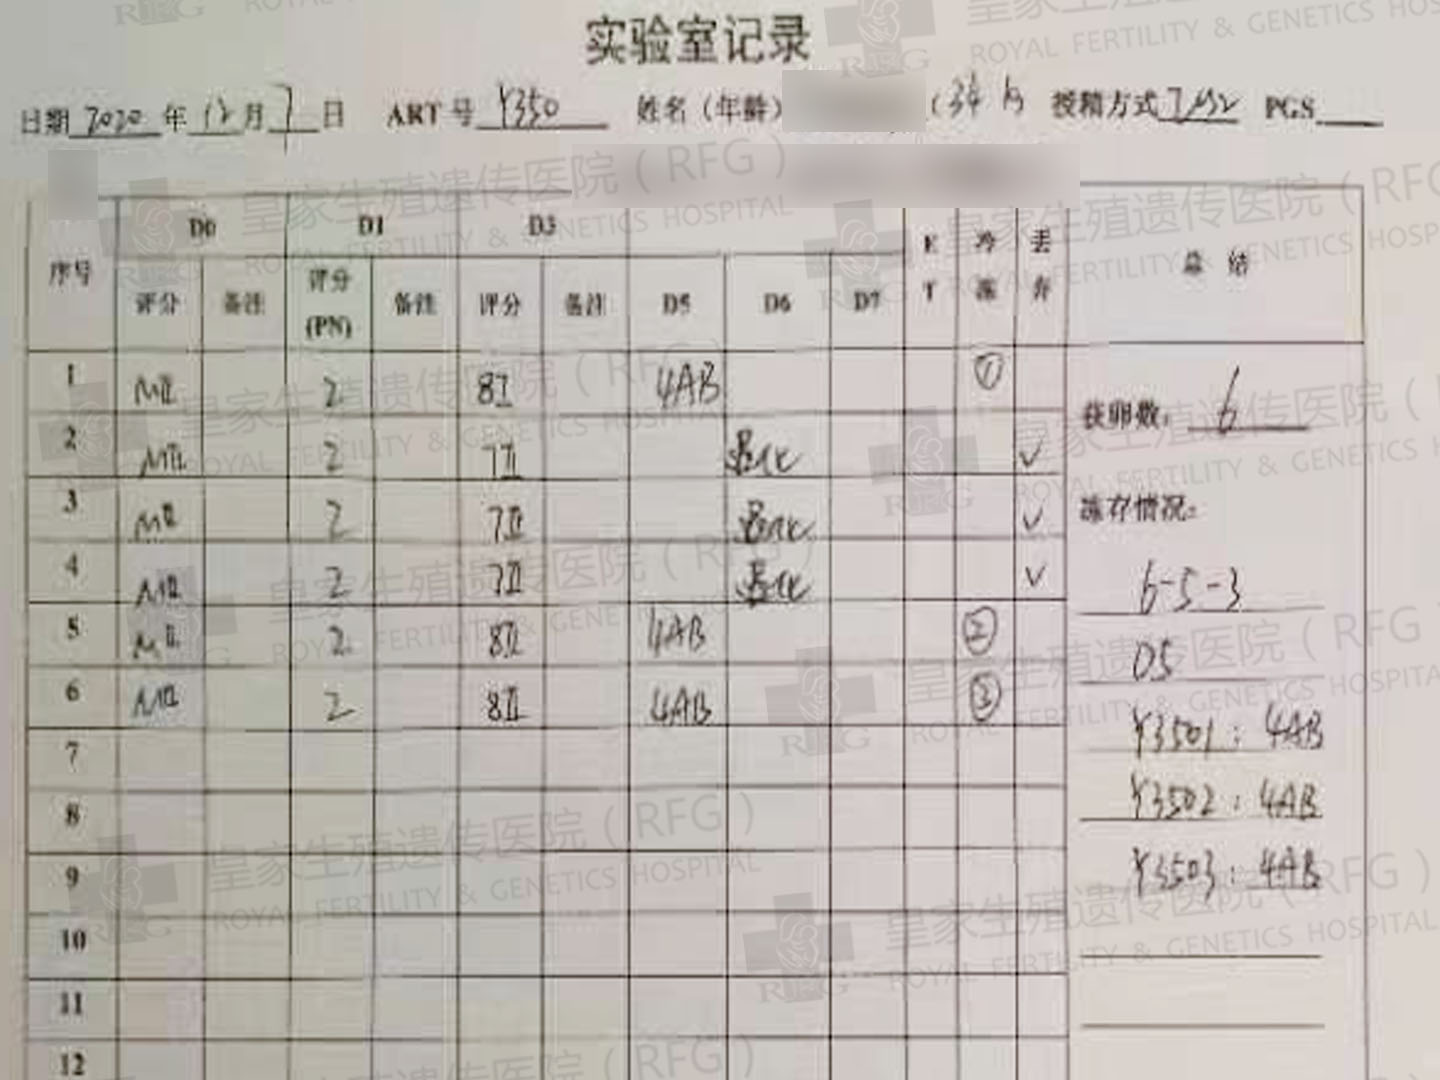 实验室记录
日期 2020 年 12 月 7 日 ART 号 Y350 姓名（年龄） (34 授精方式 PGS
序号 D0 D1 D3 E T 冷冻 丢弃 总结
评分 备注 评分(PN) 备注 评分 备注 D5 D6 D7
1 MII 2 8I 4AB ①
2 MII 2 7II 退化 ✓
3 MII 2 7II 退化 ✓
4 MII 2 7II 退化 ✓
5 MII 2 8II 4AB ②
6 MII 2 8II 4AB ③
7
8
9
10
11
12
获卵数： 6
冻存情况：
6-5-3
D5
Y3501: 4AB
Y3502: 4AB
Y3503: 4AB
皇家生殖遗传医院（RFG）
ROYAL FERTILITY & GENETICS HOSPITAL
RFG